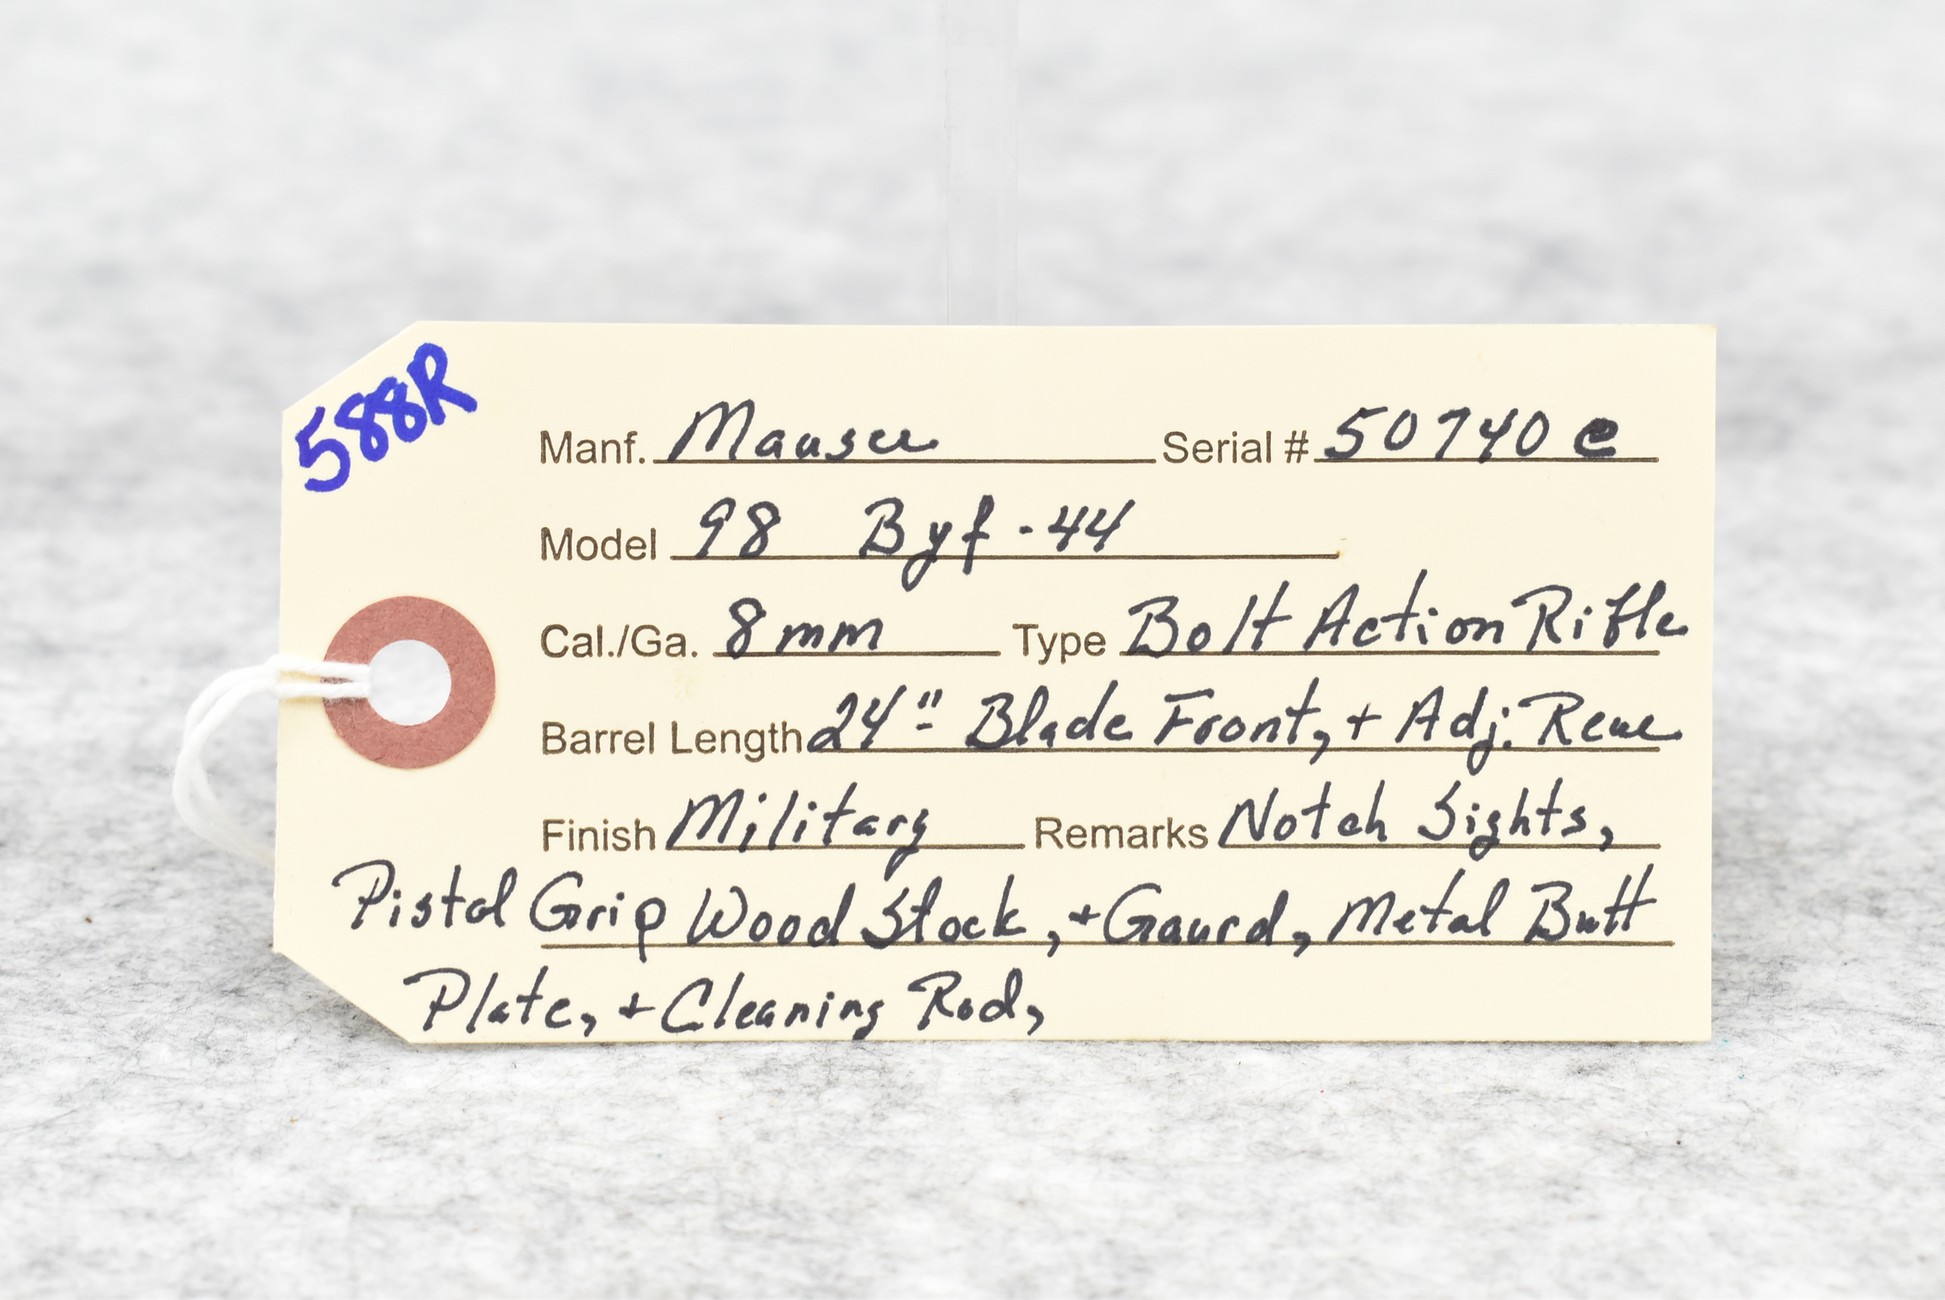 588R
Manf. Mauser Serial # 50740 e
Model 98 Byf - 44
Cal./Ga. 8mm Type Bolt Action Rifle
Barrel Length 24"- Blade Front, + Adj. Rear
Finish Military Remarks Notch Sights,
Pistol Grip Wood Stock, + Gaurd, Metal Butt
Plate, + Cleaning Rod,